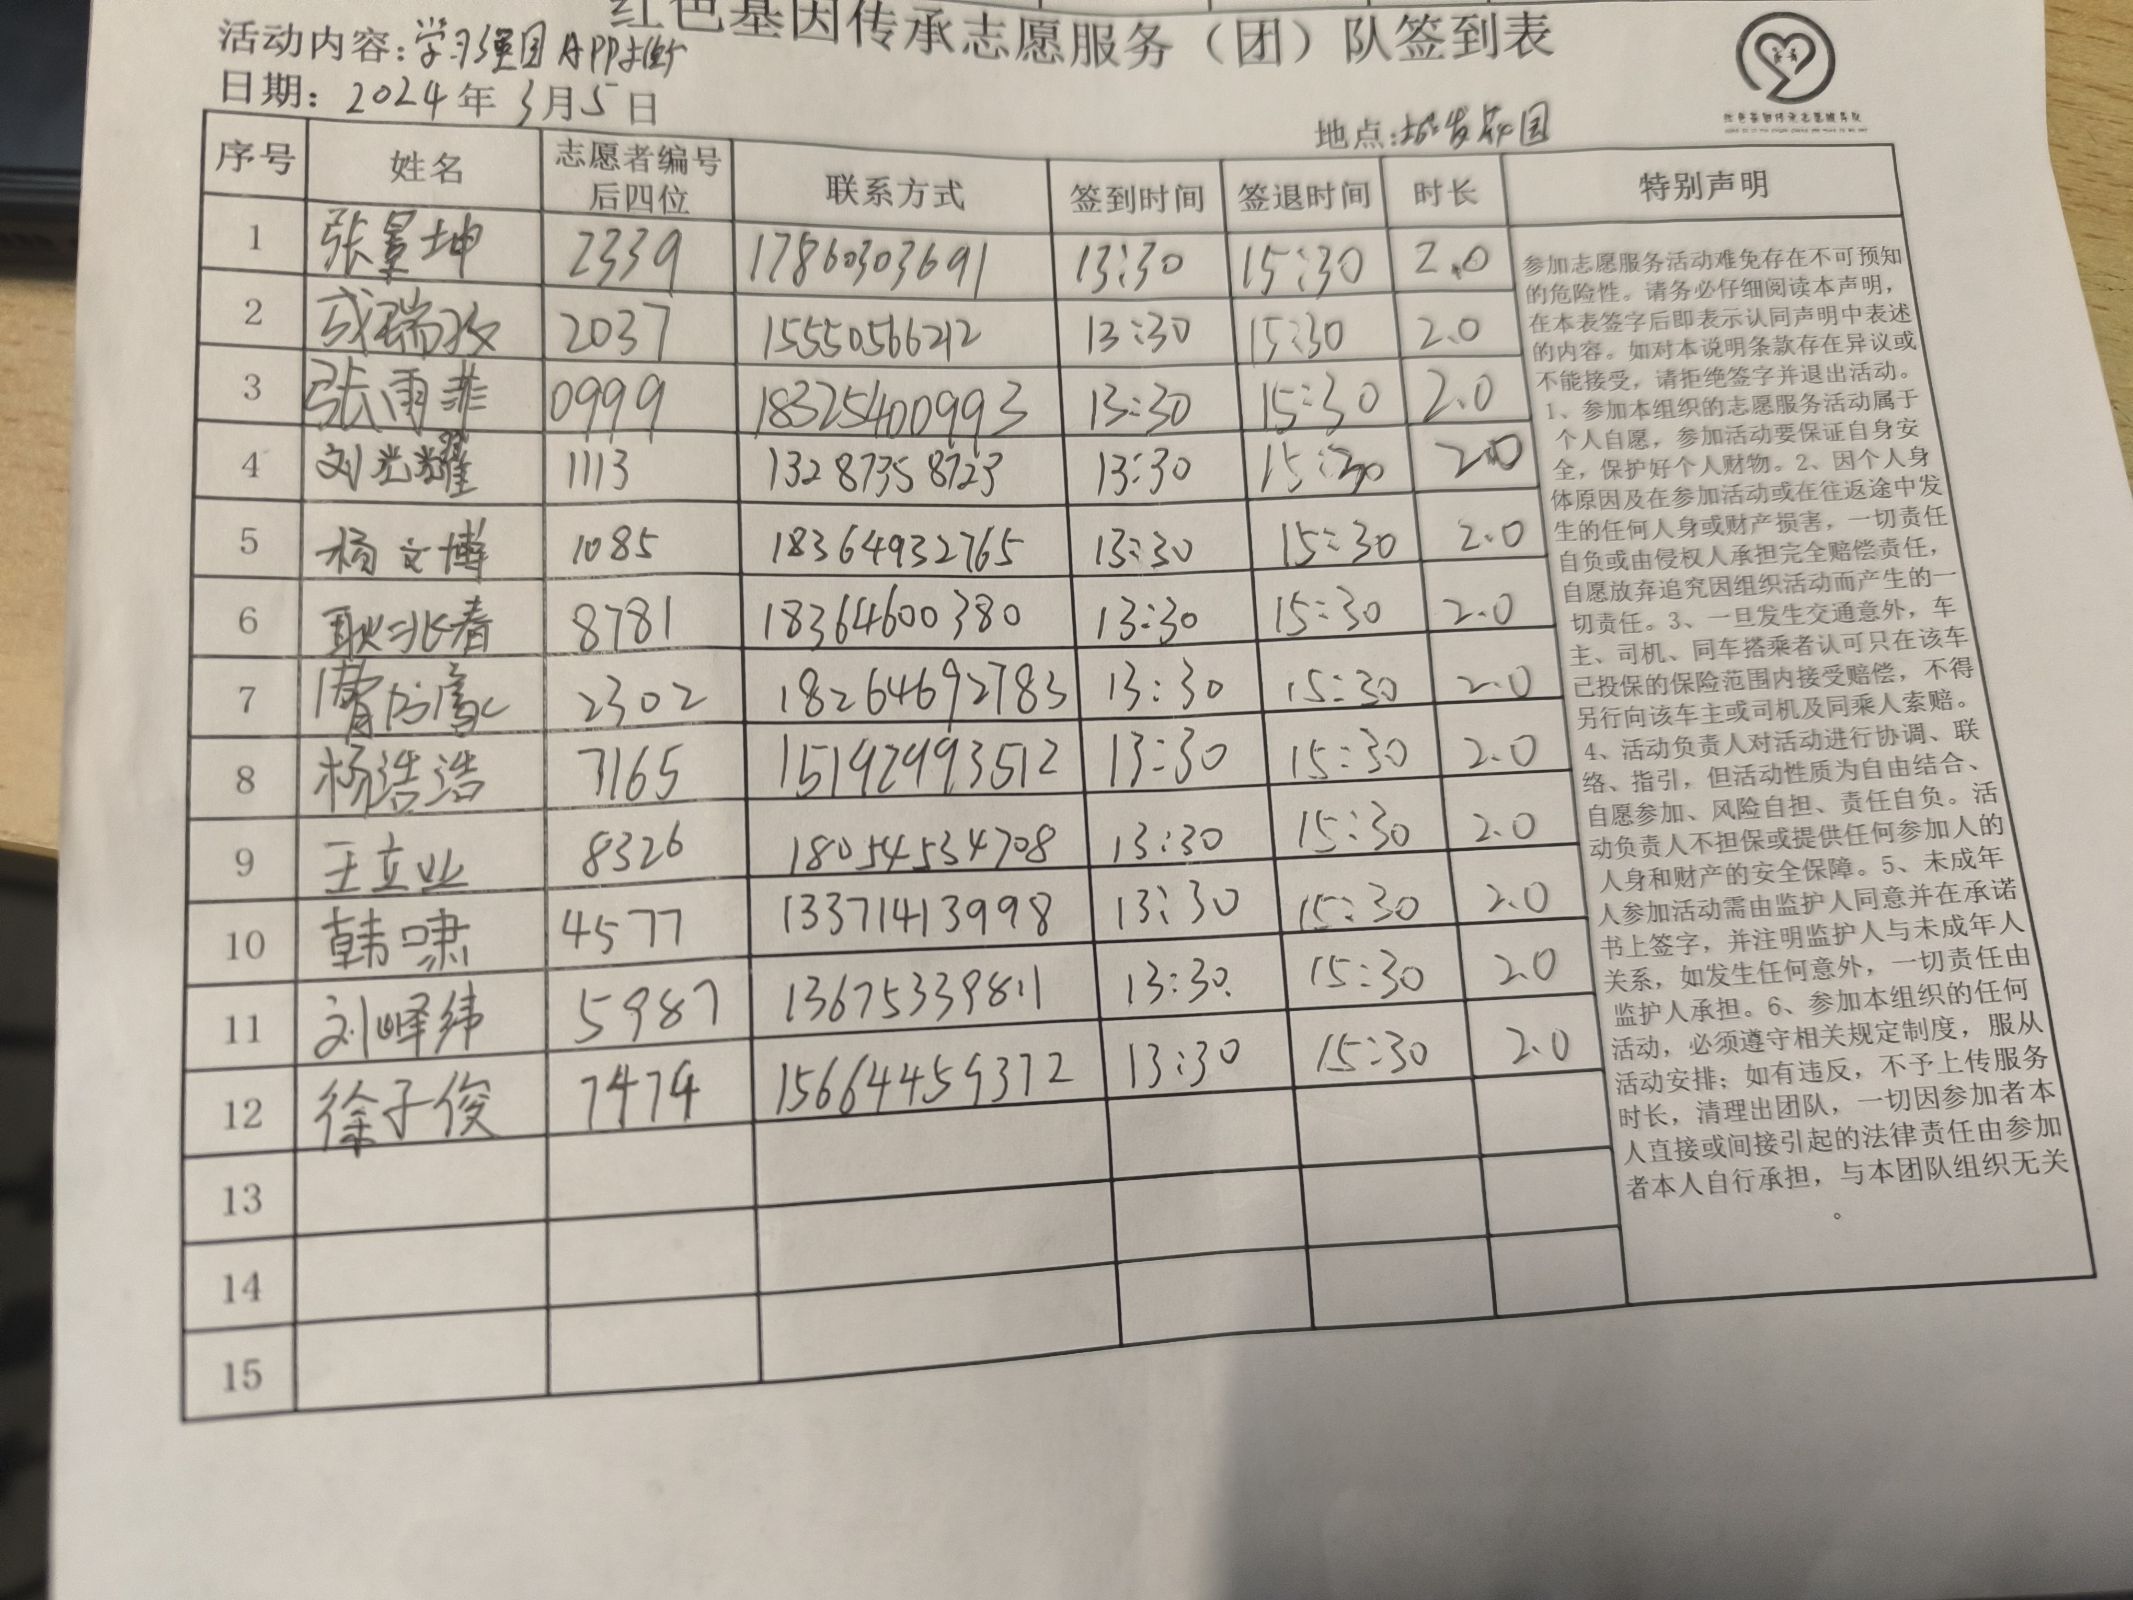 红色基因传承志愿服务（团）队签到表
活动内容：学习强国APP推广
日期：2024年3月5日
地点：城发花园
序号 姓名 志愿者编号后四位 联系方式 签到时间 签退时间 时长 特别声明
1 张景坤 2339 17860303691 13:30 15:30 2.0
2 成瑞孜 2037 15550566212 13:30 15:30 2.0
3 张雨菲 0999 18325400993 13:30 15:30 2.0
4 刘光耀 1113 13287358723 13:30 15:30 2.0
5 杨文博 1085 18364932765 13:30 15:30 2.0
6 耿兆春 8781 18364600380 13:30 15:30 2.0
7 2302 18264692783 13:30 15:30 2.0
8 杨浩浩 7165 15192993512 13:30 15:30 2.0
9 王立业 8326 18054534708 13:30 15:30 2.0
10 韩啸 4577 13371413998 13:30 15:30 2.0
11 刘峄纬 5987 13675339811 13:30 15:30 2.0
12 徐子俊 7474 15664459372 13:30 15:30 2.0
13
14
15
参加志愿服务活动难免存在不可预知
的危险性。请务必仔细阅读本声明，
在本表签字后即表示认同声明中表述
的内容。如对本说明条款存在异议或
不能接受，请拒绝签字并退出活动。
1、参加本组织的志愿服务活动属于
个人自愿，参加活动要保证自身安
全，保护好个人财物。2、因个人身
体原因及在参加活动或在往返途中发
生的任何人身或财产损害，一切责任
自负或由侵权人承担完全赔偿责任，
自愿放弃追究因组织活动而产生的一
切责任。3、一旦发生交通意外，车
主、司机、同车搭乘者认可只在该车
已投保的保险范围内接受赔偿，不得
另行向该车主或司机及同乘人索赔。
4、活动负责人对活动进行协调、联
络、指引，但活动性质为自由结合、
自愿参加、风险自担、责任自负。活
动负责人不担保或提供任何参加人的
人身和财产的安全保障。5、未成年
人参加活动需由监护人同意并在承诺
书上签字，并注明监护人与未成年人
关系，如发生任何意外，一切责任由
监护人承担。6、参加本组织的任何
活动，必须遵守相关规定制度，服从
活动安排；如有违反，不予上传服务
时长，清理出团队，一切因参加者本
人直接或间接引起的法律责任由参加
者本人自行承担，与本团队组织无关
。